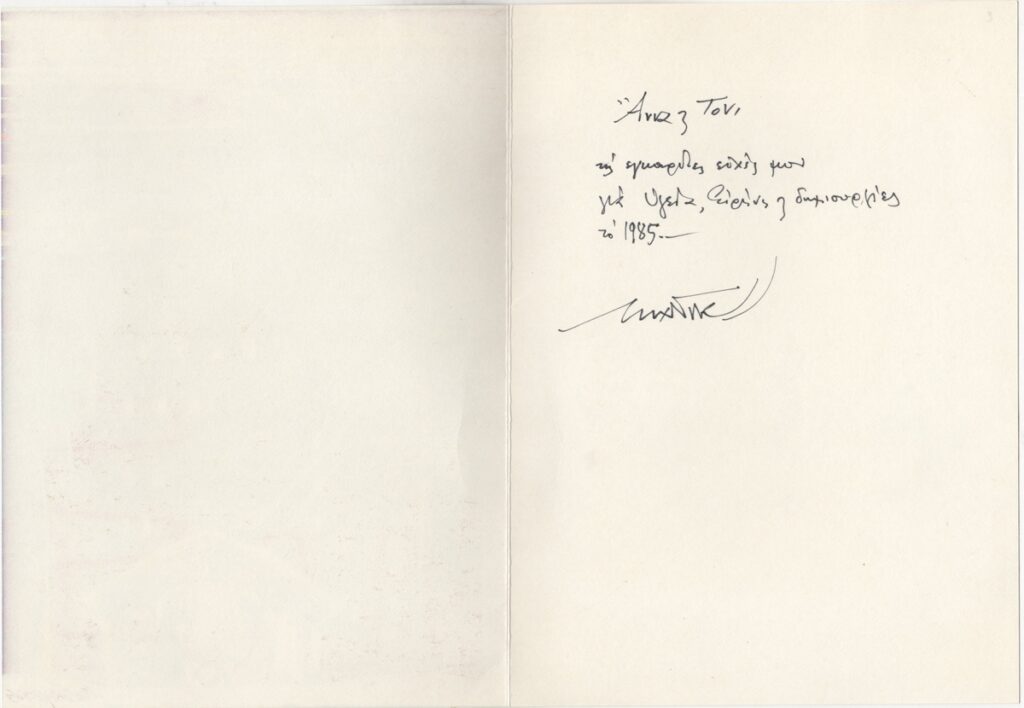 Ἄννα ϗ Τόνι
τίς εγκαρδιες ευχές μου
γιά Υγεία, Ειρήνη ϗ δημιουργίες
τό 1985.—